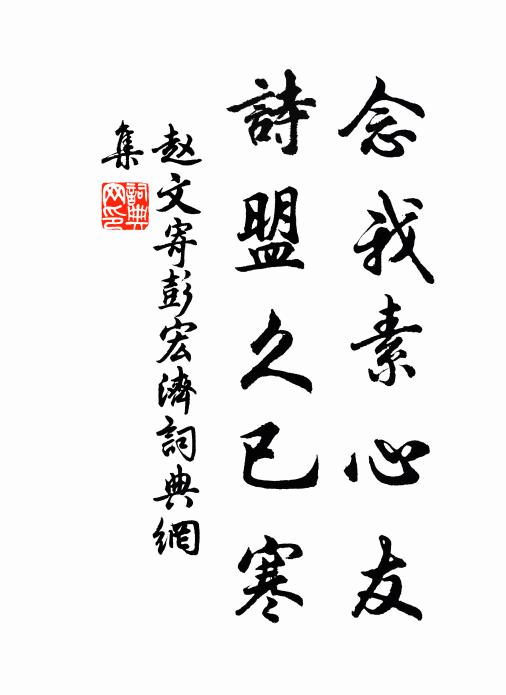 念我素心友
詩盟久已寒
赵文寄彭宏濟詞典網
集
詞典
网印